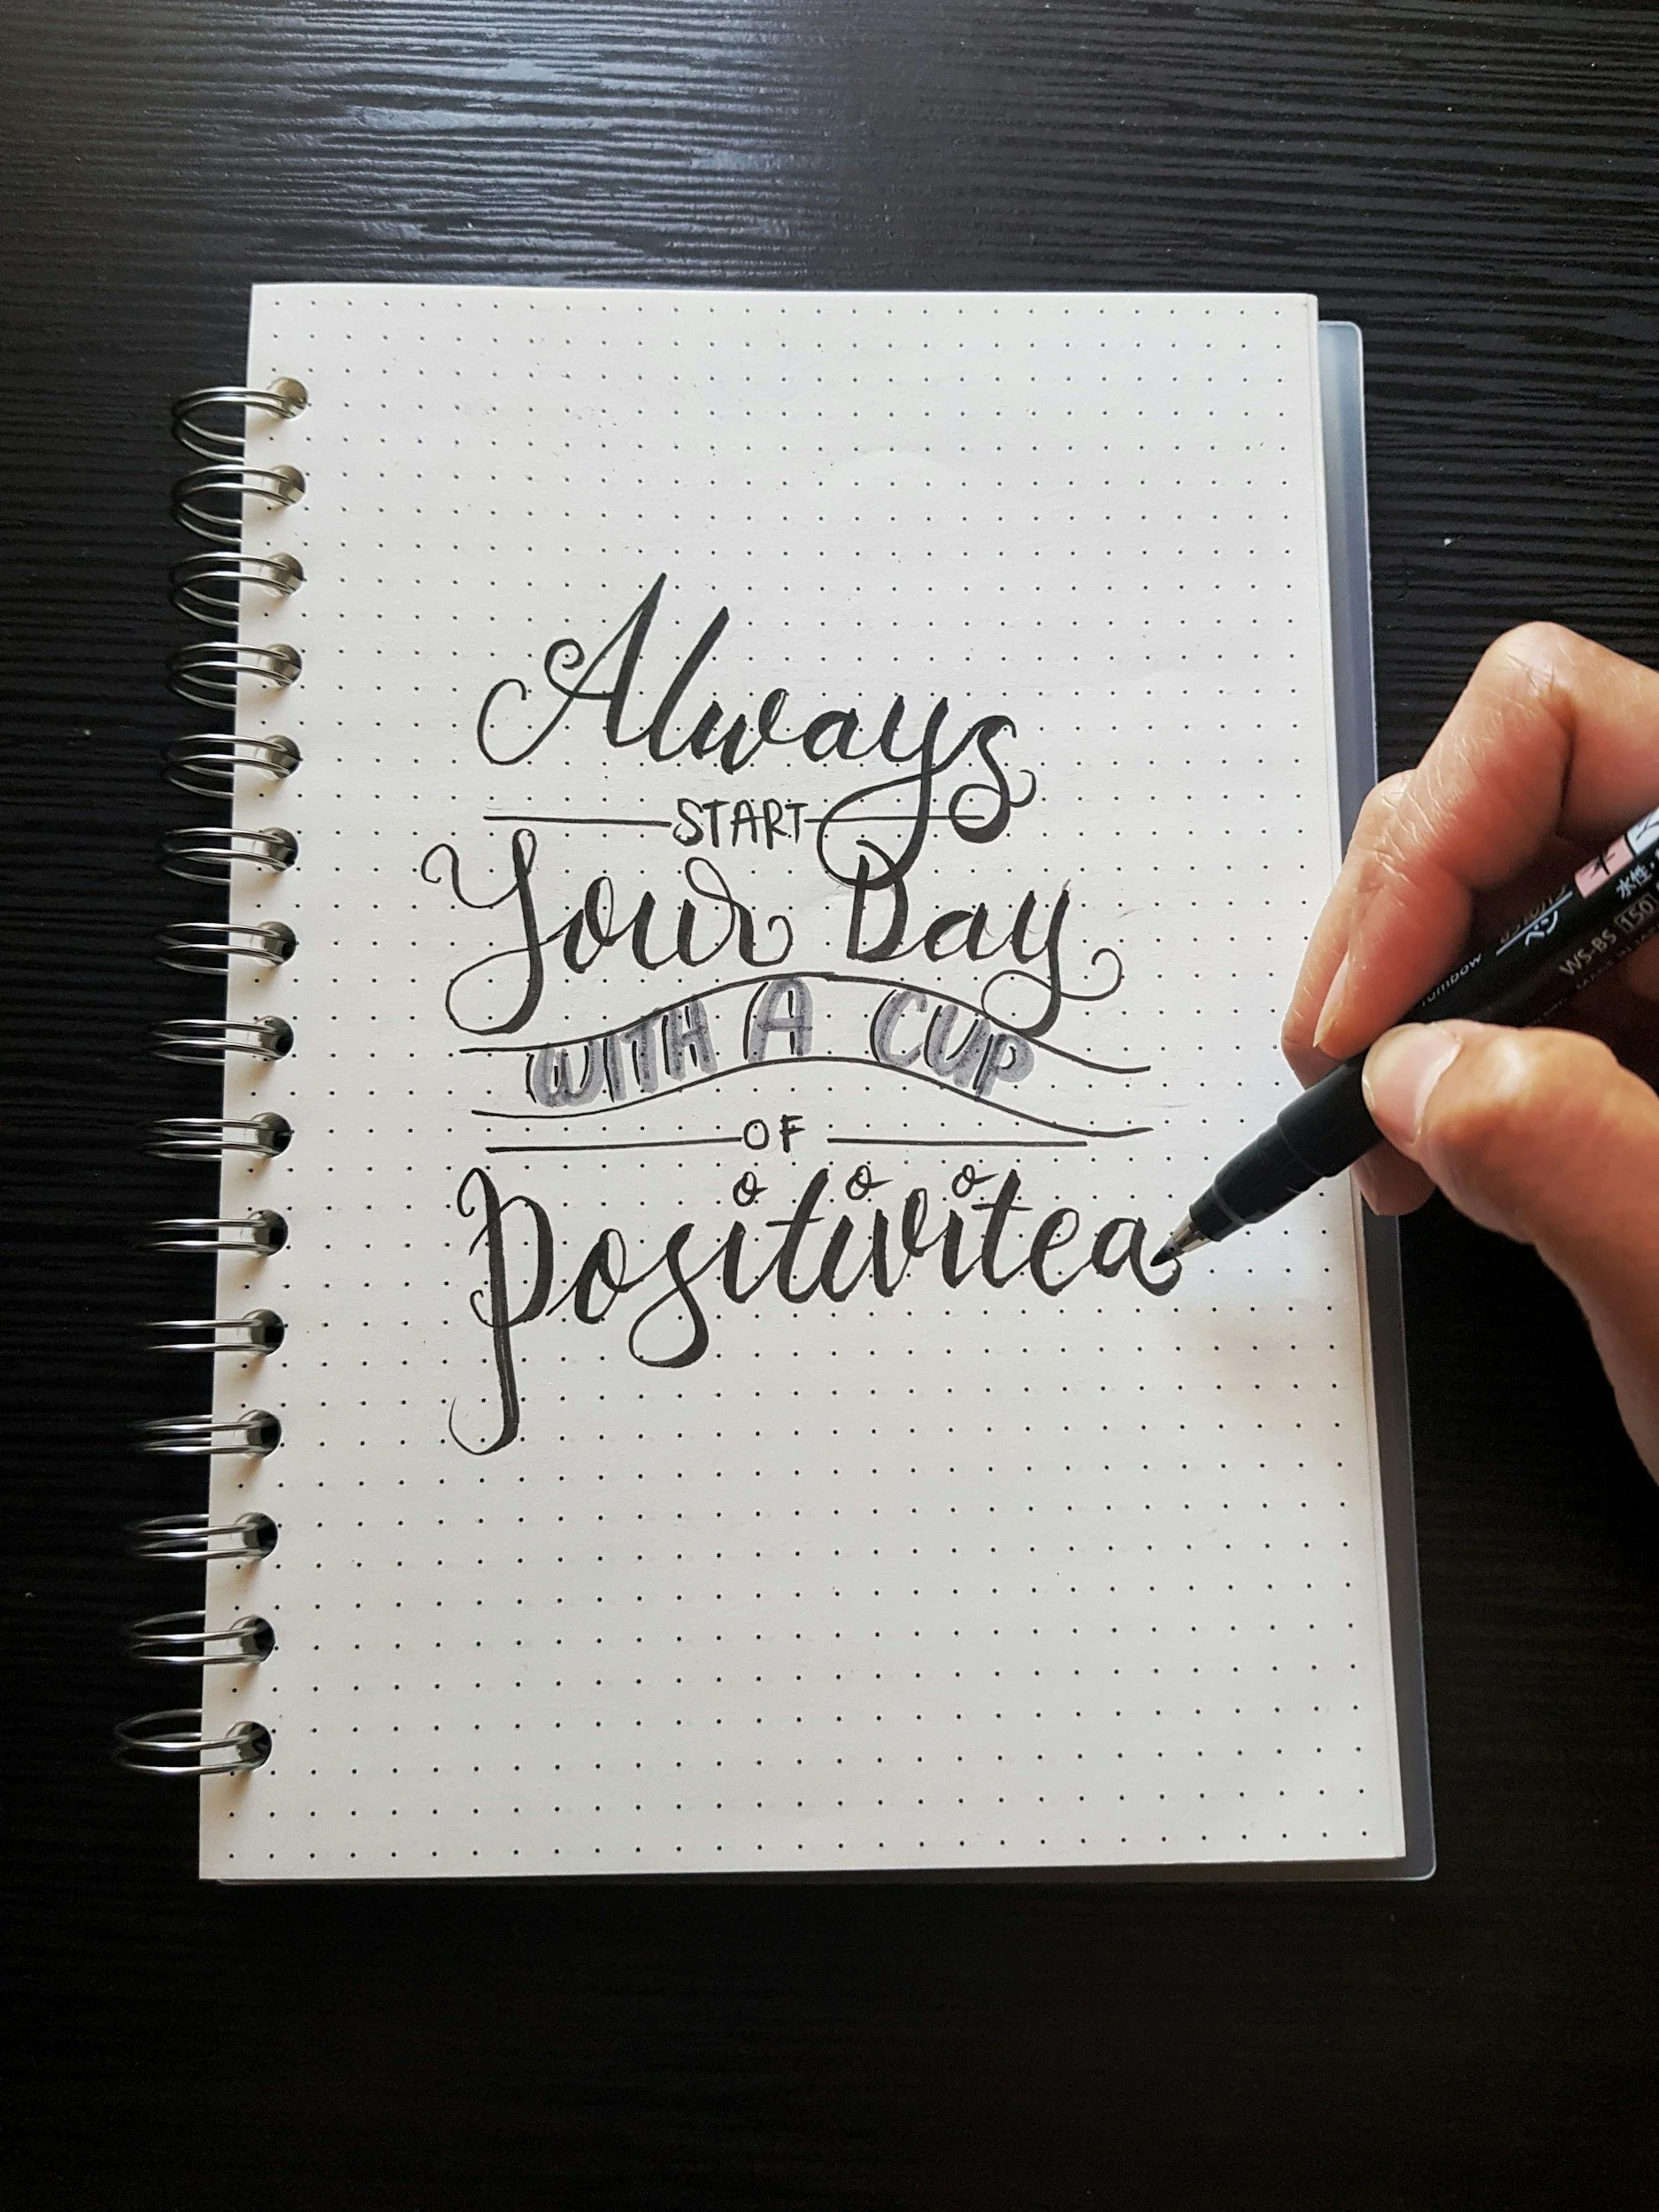 Always
START
Your Day
WITH A CUP
OF
Positivitea
Tombow
水性
WS-BS 150